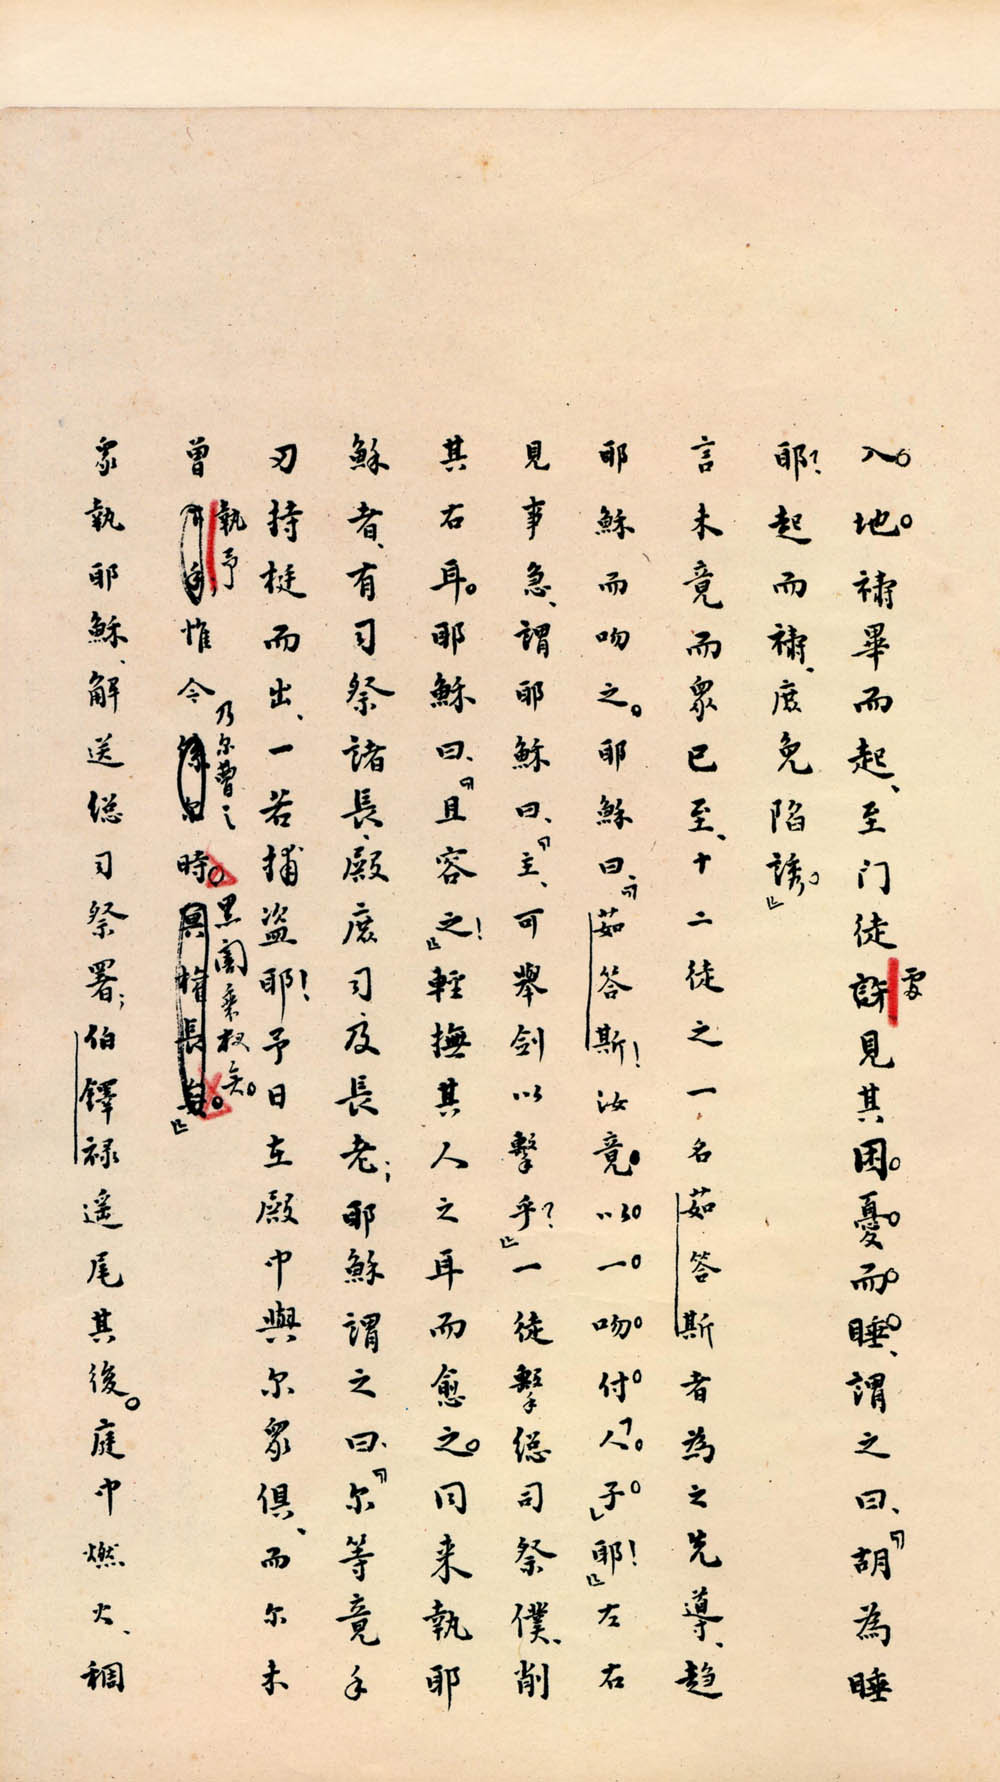 入。地。禱畢而起、至门徒處見其困。憂。而。睡。、謂之曰、『胡為睡
耶?起而禱、庶免陷誘。』
言未竟而眾已至、十二徒之一名茹答斯者為之先導、趋
耶穌而吻之。耶穌曰、『茹答斯!汝竟。以。一。吻。付。「人。子。」耶!』左右
見事急、謂耶穌曰、『主、可舉劍以擊乎?』一徒擊総司祭僕、削
其右耳。耶穌曰、『且容之!』輕撫其人之耳而愈之。同来執耶
穌者、有司祭諸長、殿庶司及長老;耶穌謂之曰、『尔等竟手
刃持梃而出、一若捕盗耶!予日在殿中與尔眾俱、而尔未
曾執予惟今乃尔曹之時。黑闇秉权矣。』
眾執耶穌、解送総司祭署;伯鐸禄遥尾其後。庭中燃火、稠